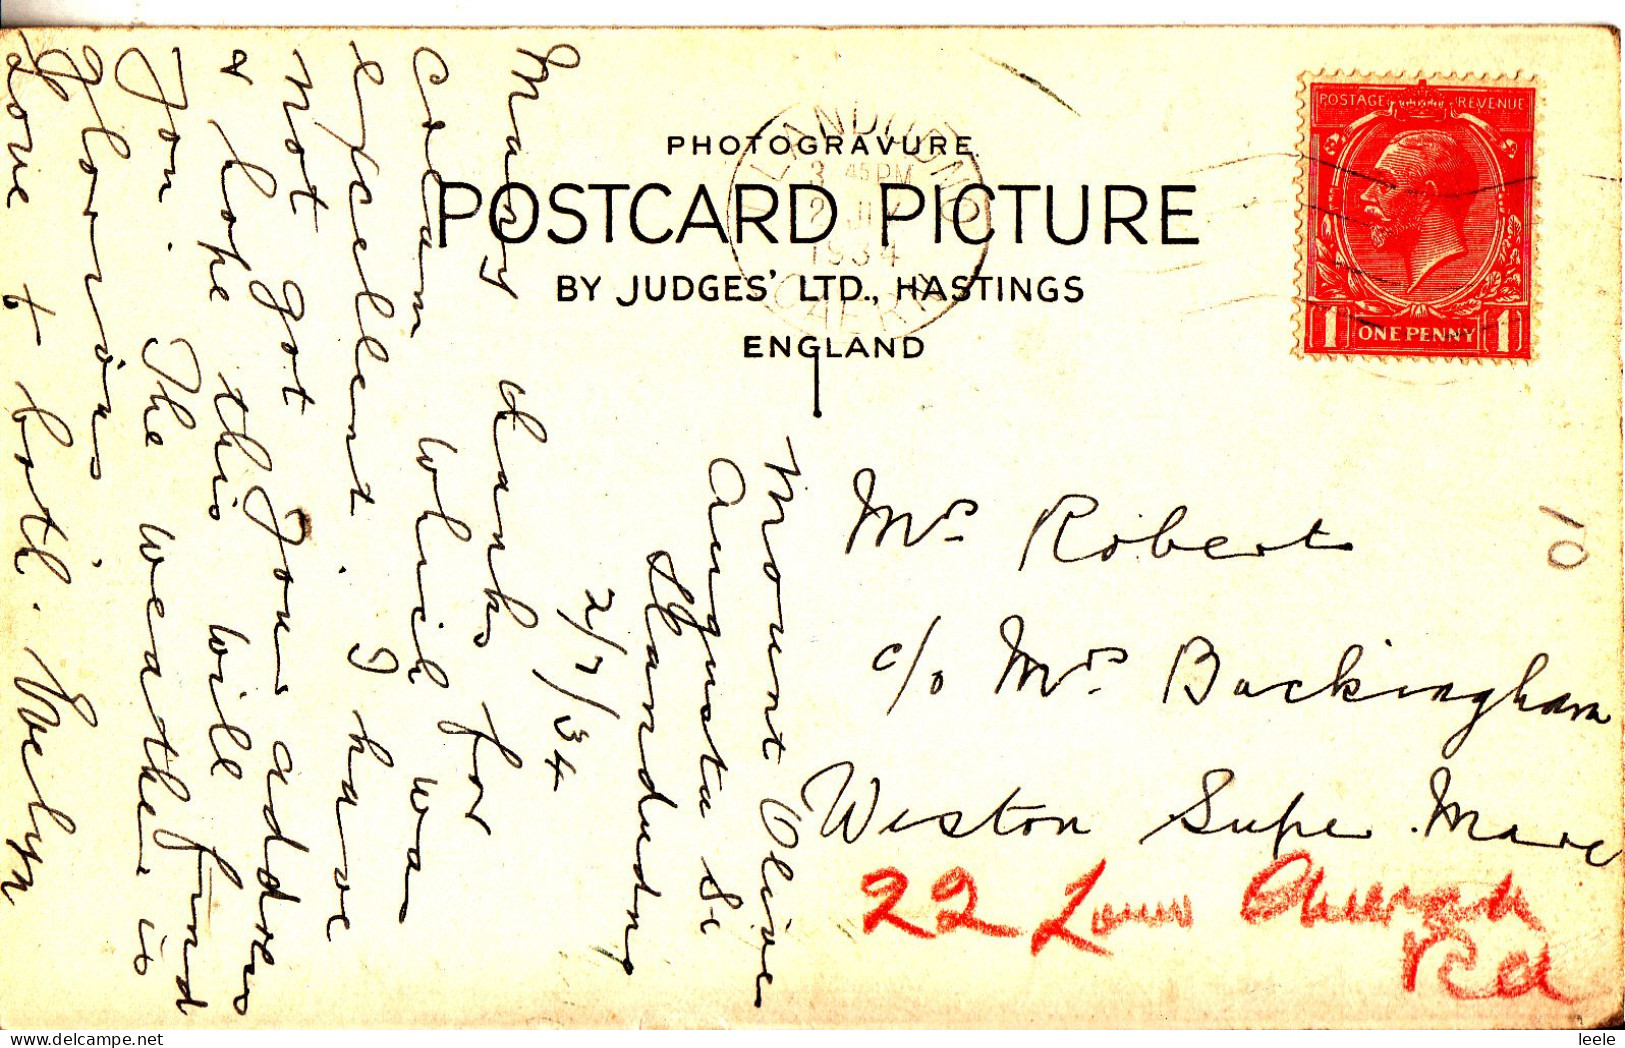 PHOTOGRAVURE
POSTCARD PICTURE
BY JUDGES' LTD., HASTINGS
ENGLAND
POSTAGE REVENUE
1 ONE PENNY 1
LLANDUDNO
3 45 PM
2 JLY
1934
Mount Olive
Augusta St
Llandudno
2/7/34
Many thanks for
cream which was
excellent. I have
not got your address
& hope this will find
you. The weather is
glorious,
Love to both. Evelyn
Mrs Roberts
c/o Mrs Buckingham
Weston Super Mare
22 Lower Church
Rd
10
leele